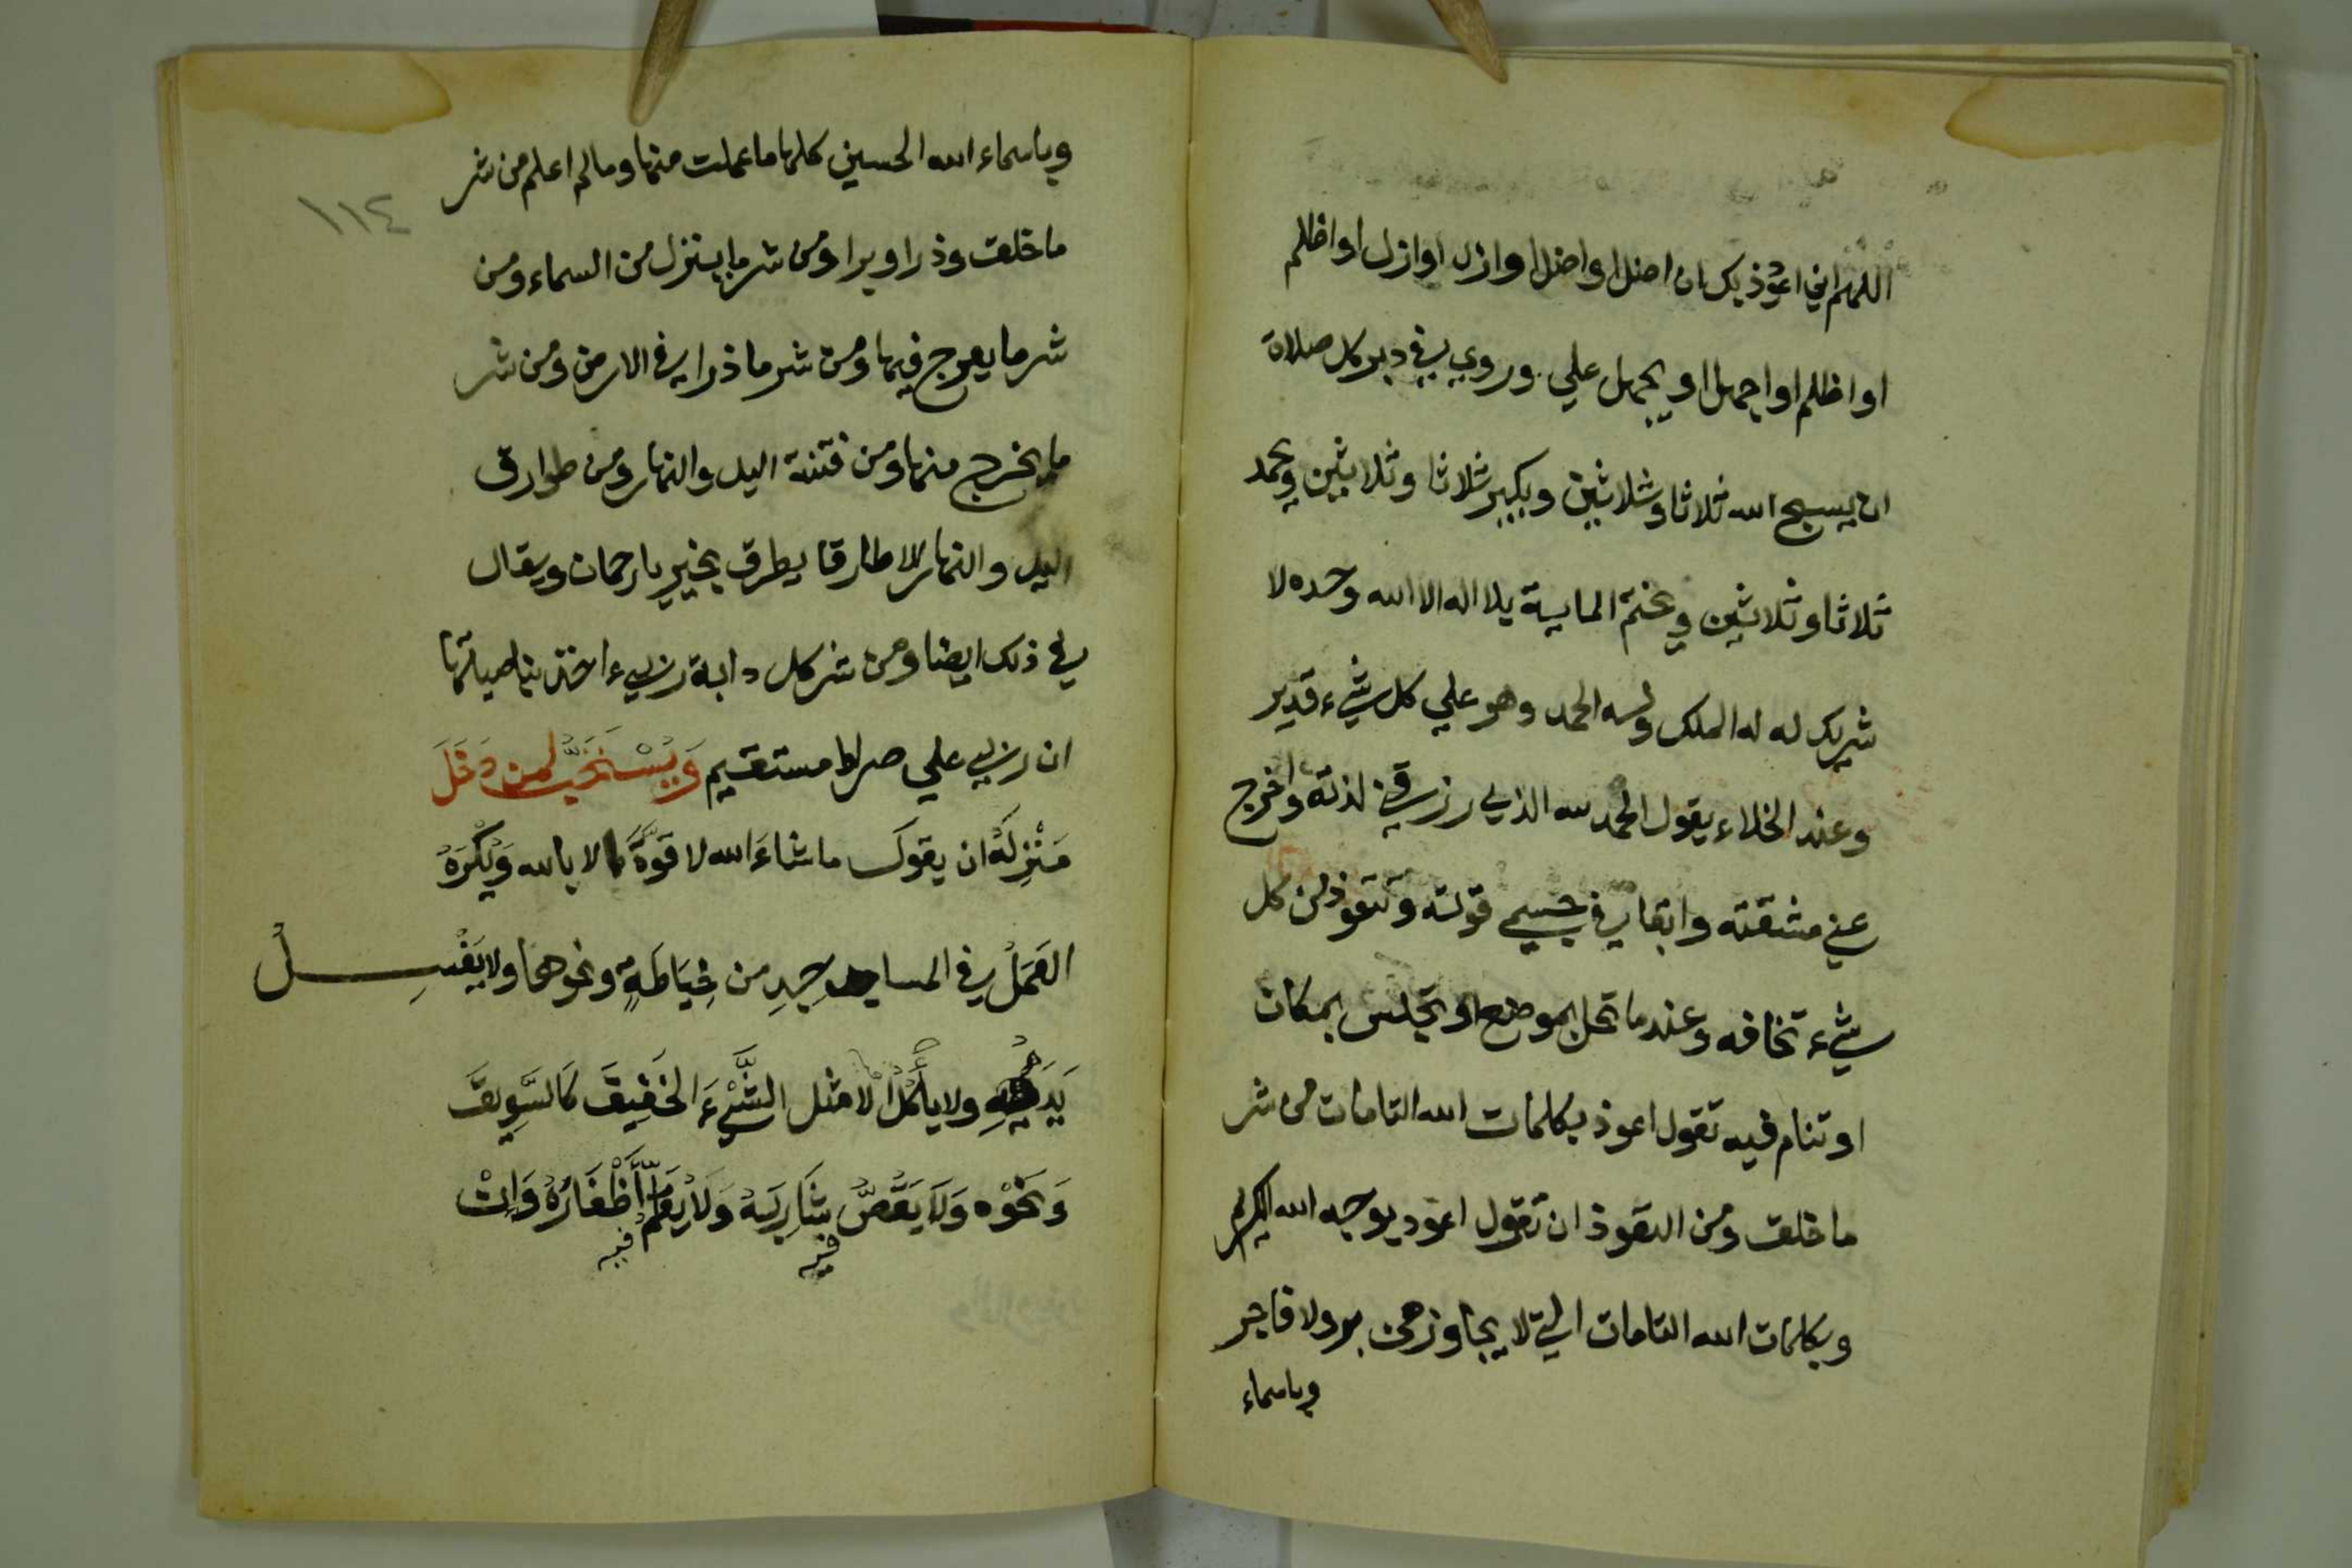 اللهم اني اعوذ بك ان اضل او اضل او ازل او ازل او اظلم
او اظلم او اجهل او يجهل علي وروي في دبر كل صلاة
ان يسبح الله ثلاثا وثلاثين ويكبر ثلاثا وثلاثين ويحمد
ثلاثا وثلاثين ويختم الماية بلا اله الا الله وحده لا
شريك له له الملك وله الحمد وهو علي كل شيء قدير
وعند الخلاء يقول الحمد لله الذي رزقني لذته واخرج
عني مشقته وابقا في جسمي قوته وتتعوذ من كل
شيء تخافه وعندما تحل بموضع او تجلس بمكان
او تنام فيه تقول اعوذ بكلمات الله التامات من شر
ما خلق ومن التعوذ ان تقول اعوذ بوجه الله الكريم
وبكلمات الله التامات التي لا يجاوزهن بر ولا فاجر
وباسماء
١١٤
وباسماء الله الحسني كلها ما علمت منها وما لم اعلم من شر
ما خلق وذرا وبرا ومن شر ما ينزل من السماء ومن
شر ما يعرج فيها ومن شر ما ذرا في الارض ومن شر
ما يخرج منها ومن فتنة اليل والنهار ومن طوارق
اليل والنهار الا طارقا يطرق بخير يا رحمان ويقال
في ذلك ايضا ومن شر كل دابة ربي ءاخذ بناصيتها
ان ربي علي صراط مستقيم وَيُسْتَحَبُّ لمن دَخَلَ
مَنْزِلَهُ ان يقولَ ما شاءَ الله لا قوَّةَ الا بالله وَيُكْرَهُ
العَمَلُ في المساجِدِ من خِيَاطَةٍ ونحوها ولا يَغْسِلُ
يَدَيْهِ ولا يأكُلُ الا مثل الشَّيْءِ الخَفِيفَ كَالسَّوِيقَ
وَنَحْوِه وَلَا يَقُصُّ شَارِبَهُ وَلَا يُقَلِّمُ أَظْفَارَهُ وَإِنْ
فيه فيه